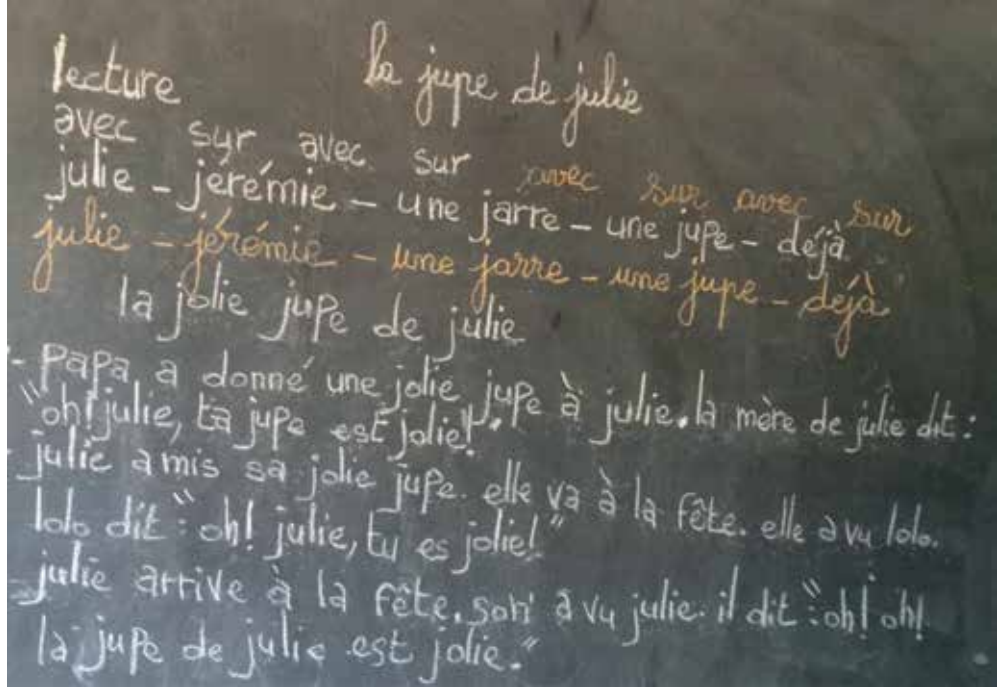 lecture la jupe de julie
avec sur avec sur avec sur avec sur
julie - jérémie - une jarre - une jupe - déjà
julie - jérémie - une jarre - une jupe - déjà
la jolie jupe de julie
- papa a donné une jolie jupe à julie. la mère de julie dit :
"oh! julie, ta jupe est jolie!".
- julie a mis sa jolie jupe. elle va à la fête. elle a vu lolo.
lolo dit : "oh! julie, tu es jolie!"
- julie arrive à la fête. sori a vu julie. il dit : "oh! oh!
la jupe de julie est jolie."